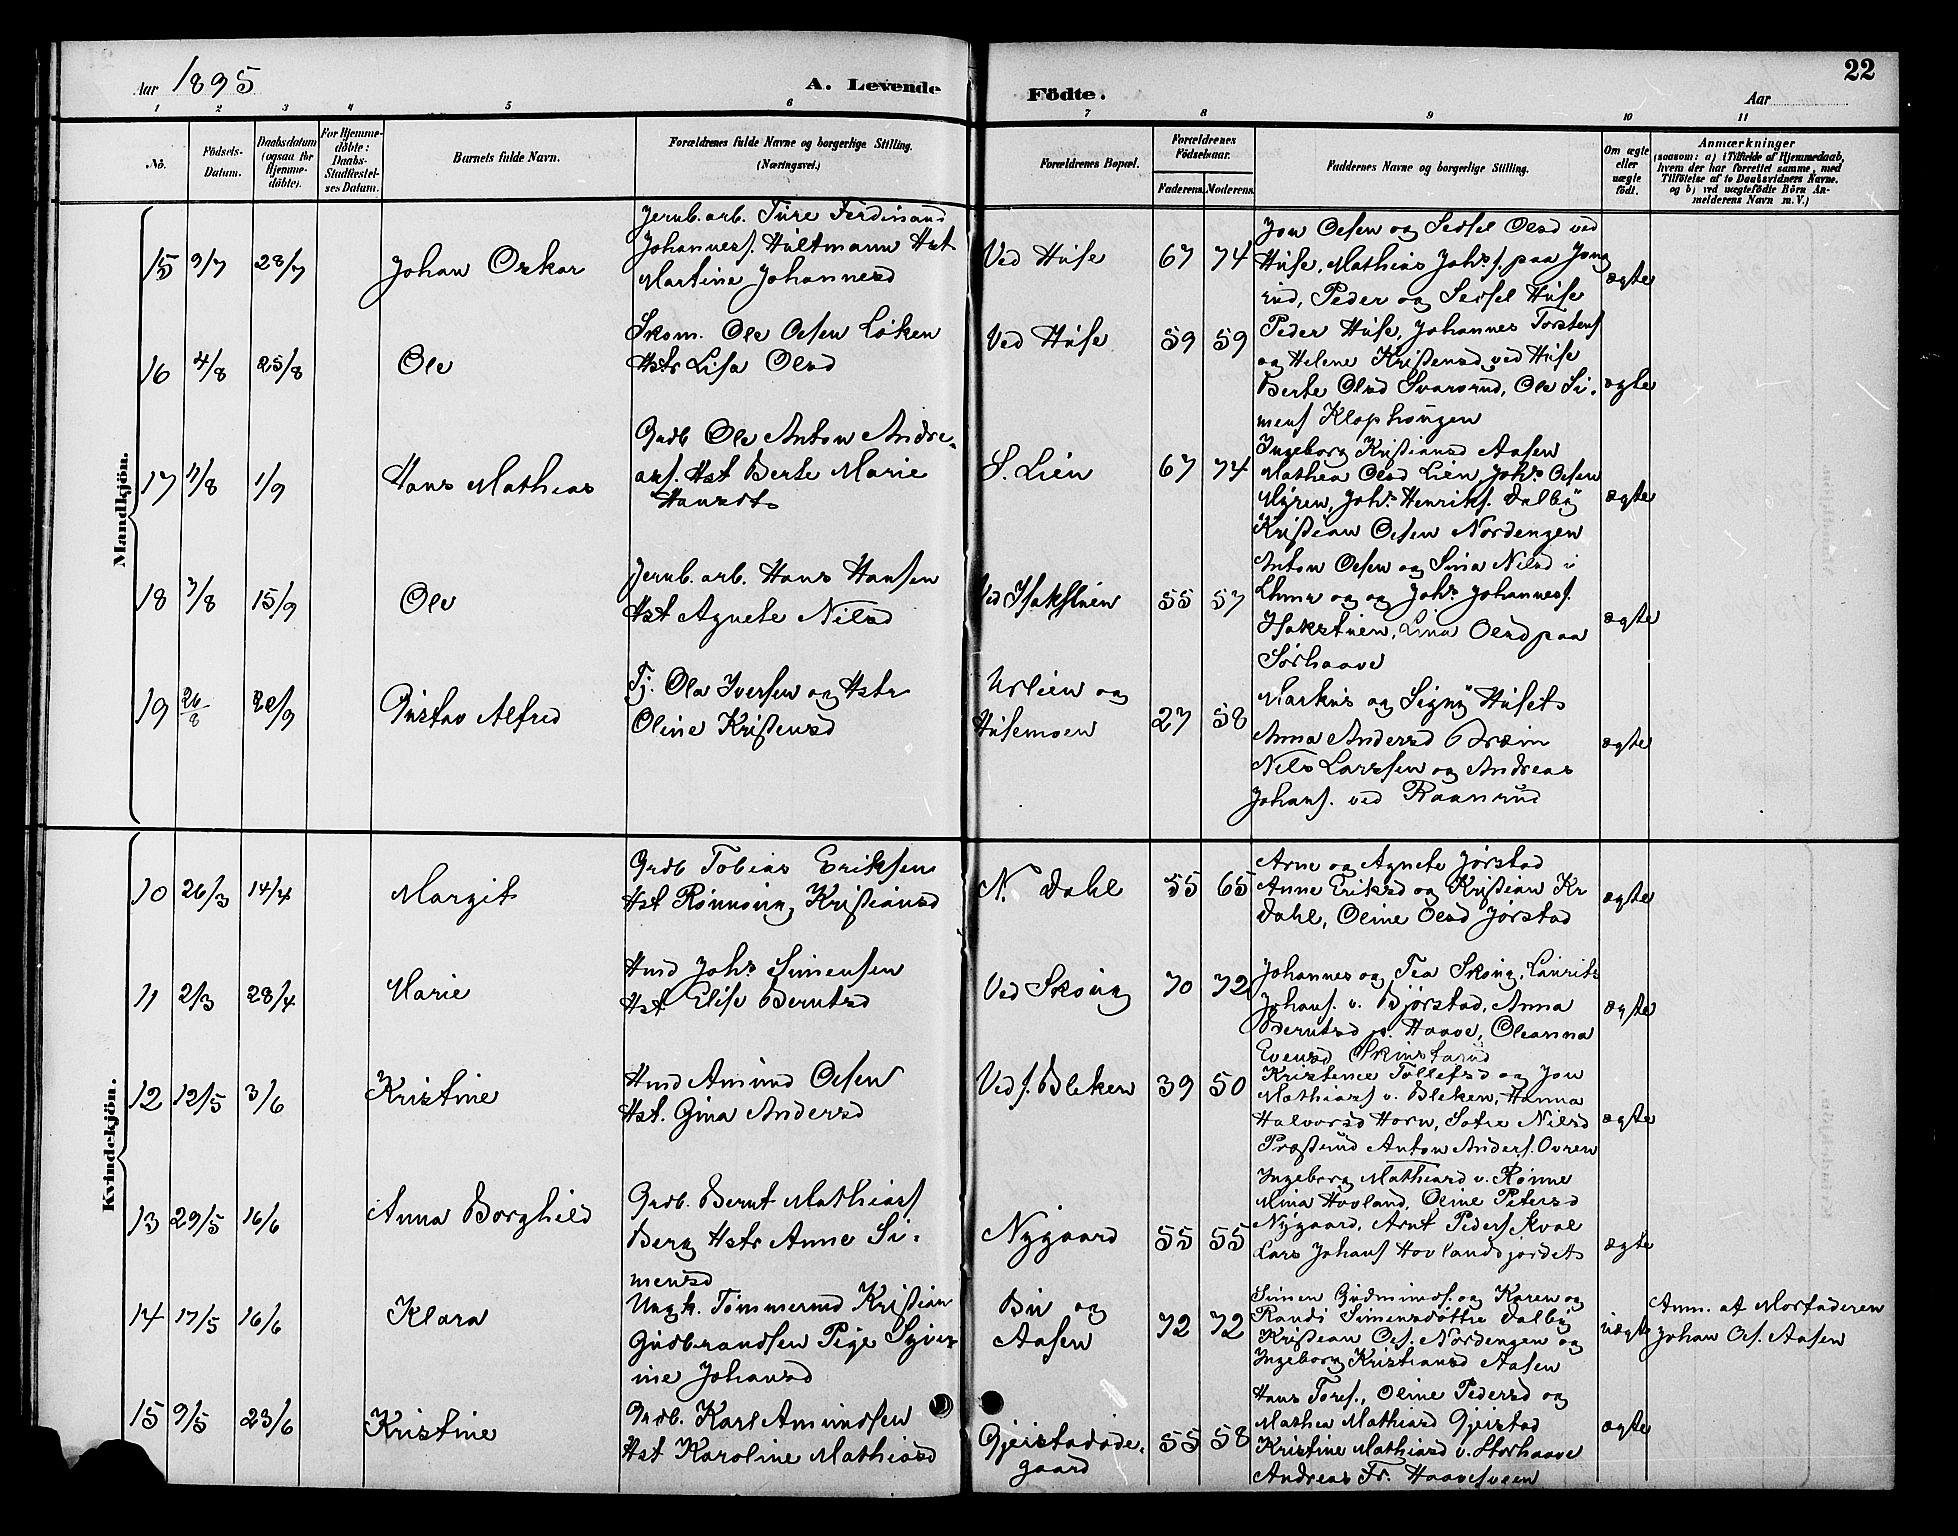 22
Aar 1895
A. Levende
Födte.
Aar
1 2 3 4 5 6 7 8 9 10 11
No.
Födsels-Datum.
Daabsdatum (ogsaa for Hjemme-döbte).
For Hjemme-döbte: Daabs-Stadfæstel-ses Datum.
Barnets fulde Navn.
Forældrenes fulde Navne og borgerlige Stilling. (Næringsvei.)
Forældrenes Bopæl.
Forældrenes Födselsaar.
Faderens. Moderens.
Faddernes Navne og borgerlige Stilling.
Om ægte eller uægte födt.
Anmærkninger
(saasom: a) i Tilfælde af Hjemmedaab, hvem der har forrettet samme, med Tilföielse af to Daabsvidners Navne. og b) ved uægtefödte Börn An-melderens Navn m. V.)
Mandkjön.
15 9/7 28/7 Johan Oskar
Jernb. arb. Ture Ferdinand
Johanness. Hultmann Hst
Martine Johannesd
Ved Huse 67 74
Jon Olsen og Sedsel Olsd ved
Huse, Mathias Johs. paa Jong
rud, Peder og Sedsel Huse
ægte
16 4/8 25/8 Ole
Skom. Ole Olsen Løken
Hstr Lisa Olsd
Ved Huse 59 59
Peder Huse, Johannes Torstens
og Helene Kristensd ved Huse
Berte Olsd Svarsrud, Ole Si-
mens Klophougen
ægte
17 11/8 1/9 Hans Mathias
Grdb Ole Anton Andre-
ass. Hst Berte Marie
Hansdt
S. Lien 67 74
Ingeborg Kristiansd Aasen
Mathea Olsd Lien, Johs Olsen
Myren, Johs Henriks. Dalby
Kristian Olsen Nordengen
ægte
18 3/8 15/9 Ole
Jernb. arb. Hans Hansen
Hst Agnete Nilsd
Ved Isakstuen 55 57
Anton Olsen og Sina Nilsd i
og og Johs Johanness.
Isakstuen, Lina Olsd paa
Sørhaave
ægte
19 26/8 22/9 Gustav Alfred
Tj. Ola Iversen og Hstr
Oline Kristensd
Urlien og
Husemoen
27 58
Markus og Signy Huset
Anna Andersd Bræin
Nils Larssen og Andreas
Johans. ved Raanrud
ægte
Kvindekjön.
10 26/3 14/4 Margit
Grdb Tobias Eriksen
Hst Rønnoug Kristiansd
N. Dahl 55 65
Arne og Agnete Jørstad
Anne Eriksd og Kristian Kr
Dahl, Oline Olsd Jørstad
ægte
11 2/3 28/4 Marie
Hmd Johs Simensen
Hst Elise Berntsd
Ved Skoug 70 72
Johannes og Tea Skoug, Laurits
Johans. v. Bjørstad, Anna
Berntsd p. Haave, Oleanna
Evensd Skinstarud
ægte
12 12/5 3/6 Kristine
Hmd Amund Olsen
Hst. Gina Andersd
Ved s. Bleken 39 50
Kristence Tollefsd og Jon
Mathiass v. Bleken, Hanna
Halvorsd Horn, Sofie Nilsd
Præsterud Anton Anders. Ovren
ægte
13 29/5 16/6 Anna Borghild
Grdb. Bernt Mathiass
Berg Hstr Anne Si-
mensd
Nygaard 55 55
Ingeborg Mathiasd v. Rønne
Mina Hovland, Oline Petersd
Nygaard, Arnt Peders. Kval
Lars Johans Hovlandsjordet
ægte
14 17/5 16/6 Klara
Ungk. Tømmermd Kristian
Gudbrandsen Pige Syver
ine Johansd
Bu og
Aasen
72 72
Simen Gudmunds. og Karen og
Randi Simensdøttre Dalby
Kristian Ols. Nordengen og
Ingeborg Kristiansd Aasen
uægte
Anm. af Morfaderen
Johan Ols. Aasen
15 9/5 23/6 Kristine
Grdb. Karl Amundsen
Hst Karoline Mathiasd
Gjeistadøde-
gaard
55 58
Hans Tores., Oline Pedersd og
Mathea Mathiasd Gjeistad
Kristine Mathiasd v. Storhaave
Andreas Fr. Haavesveen
ægte